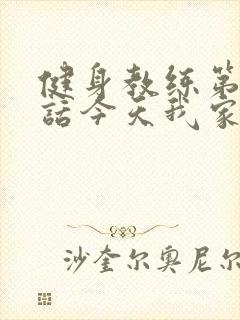 健身教练第
話今天我家
沙奎尔奥尼尔